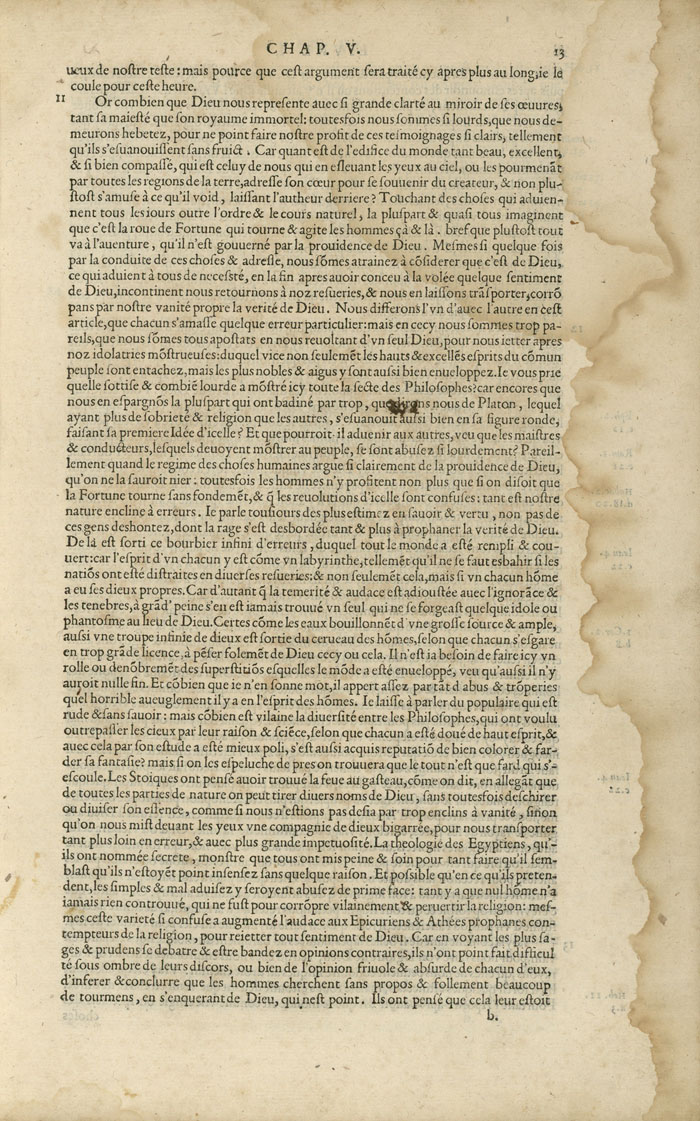 CHAP. V. 13
ueux de nostre teste: mais pource que cest argument sera traité cy apres plus au long, ie le
coule pour ceste heure.
11 Or combien que Dieu nous represente auec si grande clarté au miroir de ses œuures,
tant sa maiesté que son royaume immortel: toutesfois nous sommes si lourds, que nous de-
meurons hebetez, pour ne point faire nostre profit de ces tesmoignages si clairs, tellement
qu'ils s'esuanouissent sans fruict. Car quant est de l'edifice du monde tant beau, excellent,
& si bien compassé, qui est celuy de nous qui en esleuant les yeux au ciel, ou les pourmenãt
par toutes les regions de la terre, adresse son cœur pour se souuenir du createur, & non plu-
stost s'amuse à ce qu'il void, laissant l'autheur derriere? Touchant des choses qui aduien-
nent tous les iours outre l'ordre & le cours naturel, la pluspart & quasi tous imaginent
que c'est la roue de Fortune qui tourne & agite les hommes çà & là. bref que plustost tout
va à l'auenture, qu'il n'est gouuerné par la prouidence de Dieu. Mesmes si quelque fois
par la conduite de ces choses & adresse, nous sõmes atrainez à cõsiderer que c'est de Dieu,
ce qui aduient à tous de necessté, en la fin apres auoir conceu à la volée quelque sentiment
de Dieu, incontinent nous retournons à noz resueries, & nous en laissons trãsporter, corrõ
pans par nostre vanité propre la verité de Dieu. Nous differons l'vn d'auec l'autre en cest
article, que chacun s'amasse quelque erreur particulier: mais en cecy nous sommes trop pa-
reils, que nous sõmes tous apostats en nous reuoltant d'vn seul Dieu, pour nous ietter apres
noz idolatries mõstrueuses: duquel vice non seulemẽt les hauts & excellẽs esprits du cõmun
peuple sont entachez, mais les plus nobles & aigus y sont aussi bien enueloppez. Ie vous prie
quelle sottise & combiẽ lourde a mõstré icy toute la secte des Philosophes? car encores que
nous en espargnõs la pluspart qui ont badiné par trop, que dirons nous de Platon, lequel
ayant plus de sobrieté & religion que les autres, s'esuanouit aussi bien en sa figure ronde,
faisant sa premiere Idée d'icelle? Et que pourroit-il aduenir aux autres, veu que les maistres
& conducteurs, lesquels deuoyent mõstrer au peuple, se sont abusez si lourdement? Pareil-
lement quand le regime des choses humaines argue si clairement de la prouidence de Dieu,
qu'on ne la sauroit nier: toutesfois les hommes n'y profitent non plus que si on disoit que
la Fortune tourne sans fondemẽt, & q̃ les reuolutions d'icelle sont confuses: tant est nostre
nature encline à erreurs. Ie parle tousiours des plus estimez en sauoir & vertu, non pas de
ces gens deshontez, dont la rage s'est desbordée tant & plus à prophaner la verité de Dieu.
De là est sorti ce bourbier infini d'erreurs, duquel tout le monde a esté rempli & cou-
uert: car l'esprit d'vn chacun y est cõme vn labyrinthe, tellemẽt qu'il ne se faut esbahir si les
natiõs ont esté distraites en diuerses resueries: & non seulemẽt cela, mais si vn chacun hõme
a eu ses dieux propres. Car d'autant q̃ la temerité & audace est adioustée auec l'ignorãce &
les tenebres, à grãd' peine s'en est iamais trouué vn seul qui ne se forgeast quelque idole ou
phantosme au lieu de Dieu. Certes cõme les eaux bouillonnẽt d'vne grosse source & ample,
aussi vne troupe infinie de dieux est sortie du cerueau des hõmes, selon que chacun s'esgare
en trop grãde licence, à pẽser folemẽt de Dieu cecy ou cela. Il n'est ia besoin de faire icy vn
rolle ou denõbremẽt des superstitiõs esquelles le mõde a esté enueloppé, veu qu'aussi il n'y
auroit nulle fin. Et cõbien que ie n'en sonne mot, il appert assez par tãt d'abus & trõperies
quel horrible aueuglement il y a en l'esprit des hõmes. Ie laisse à parler du populaire qui est
rude & sans sauoir: mais cõbien est vilaine la diuersité entre les Philosophes, qui ont voulu
outrepasser les cieux par leur raison & sciẽce, selon que chacun a esté doué de haut esprit, &
auec cela par son estude a esté mieux poli, s'est aussi acquis reputatiõ de bien colorer & far-
der sa fantasie? mais si on les espeluche de pres on trouuera que le tout n'est que fard qui s'-
escoule. Les Stoiques ont pensé auoir trouué la feue au gasteau, cõme on dit, en allegãt que
de toutes les parties de nature on peut tirer diuers noms de Dieu, sans toutesfois deschirer
ou diuiser son essence, comme si nous n'estions pas desia par trop enclins à vanité, sinon
qu'on nous mist deuant les yeux vne compagnie de dieux bigarrée, pour nous transporter
tant plus loin en erreur, & auec plus grande impetuosité. La theologie des Egyptiens, qu'-
ils ont nommée secrete, monstre que tous ont mis peine & soin pour tant faire qu'il sem-
blast qu'ils n'estoyẽt point insensez sans quelque raison. Et possible qu'en ce qu'ils preten-
dent, les simples & mal aduisez y seroyent abusez de prime face: tant y a que nul hõme n'a
iamais rien controuué, qui ne fust pour corrõpre vilainement & peruertir la religion: mes-
mes ceste varieté si confuse a augmenté l'audace aux Epicuriens & Athées prophanes con-
tempteurs de la religion, pour reietter tout sentiment de Dieu. Car en voyant les plus sa-
ges & prudens se debatre & estre bandez en opinions contraires, ils n'ont point fait difficul
té sous ombre de leurs discors, ou bien de l'opinion friuole & absurde de chacun d'eux,
d'inferer & conclurre que les hommes cherchent sans propos & follement beaucoup
de tourmens, en s'enquerant de Dieu, qui nest point. Ils ont pensé que cela leur estoit
b.